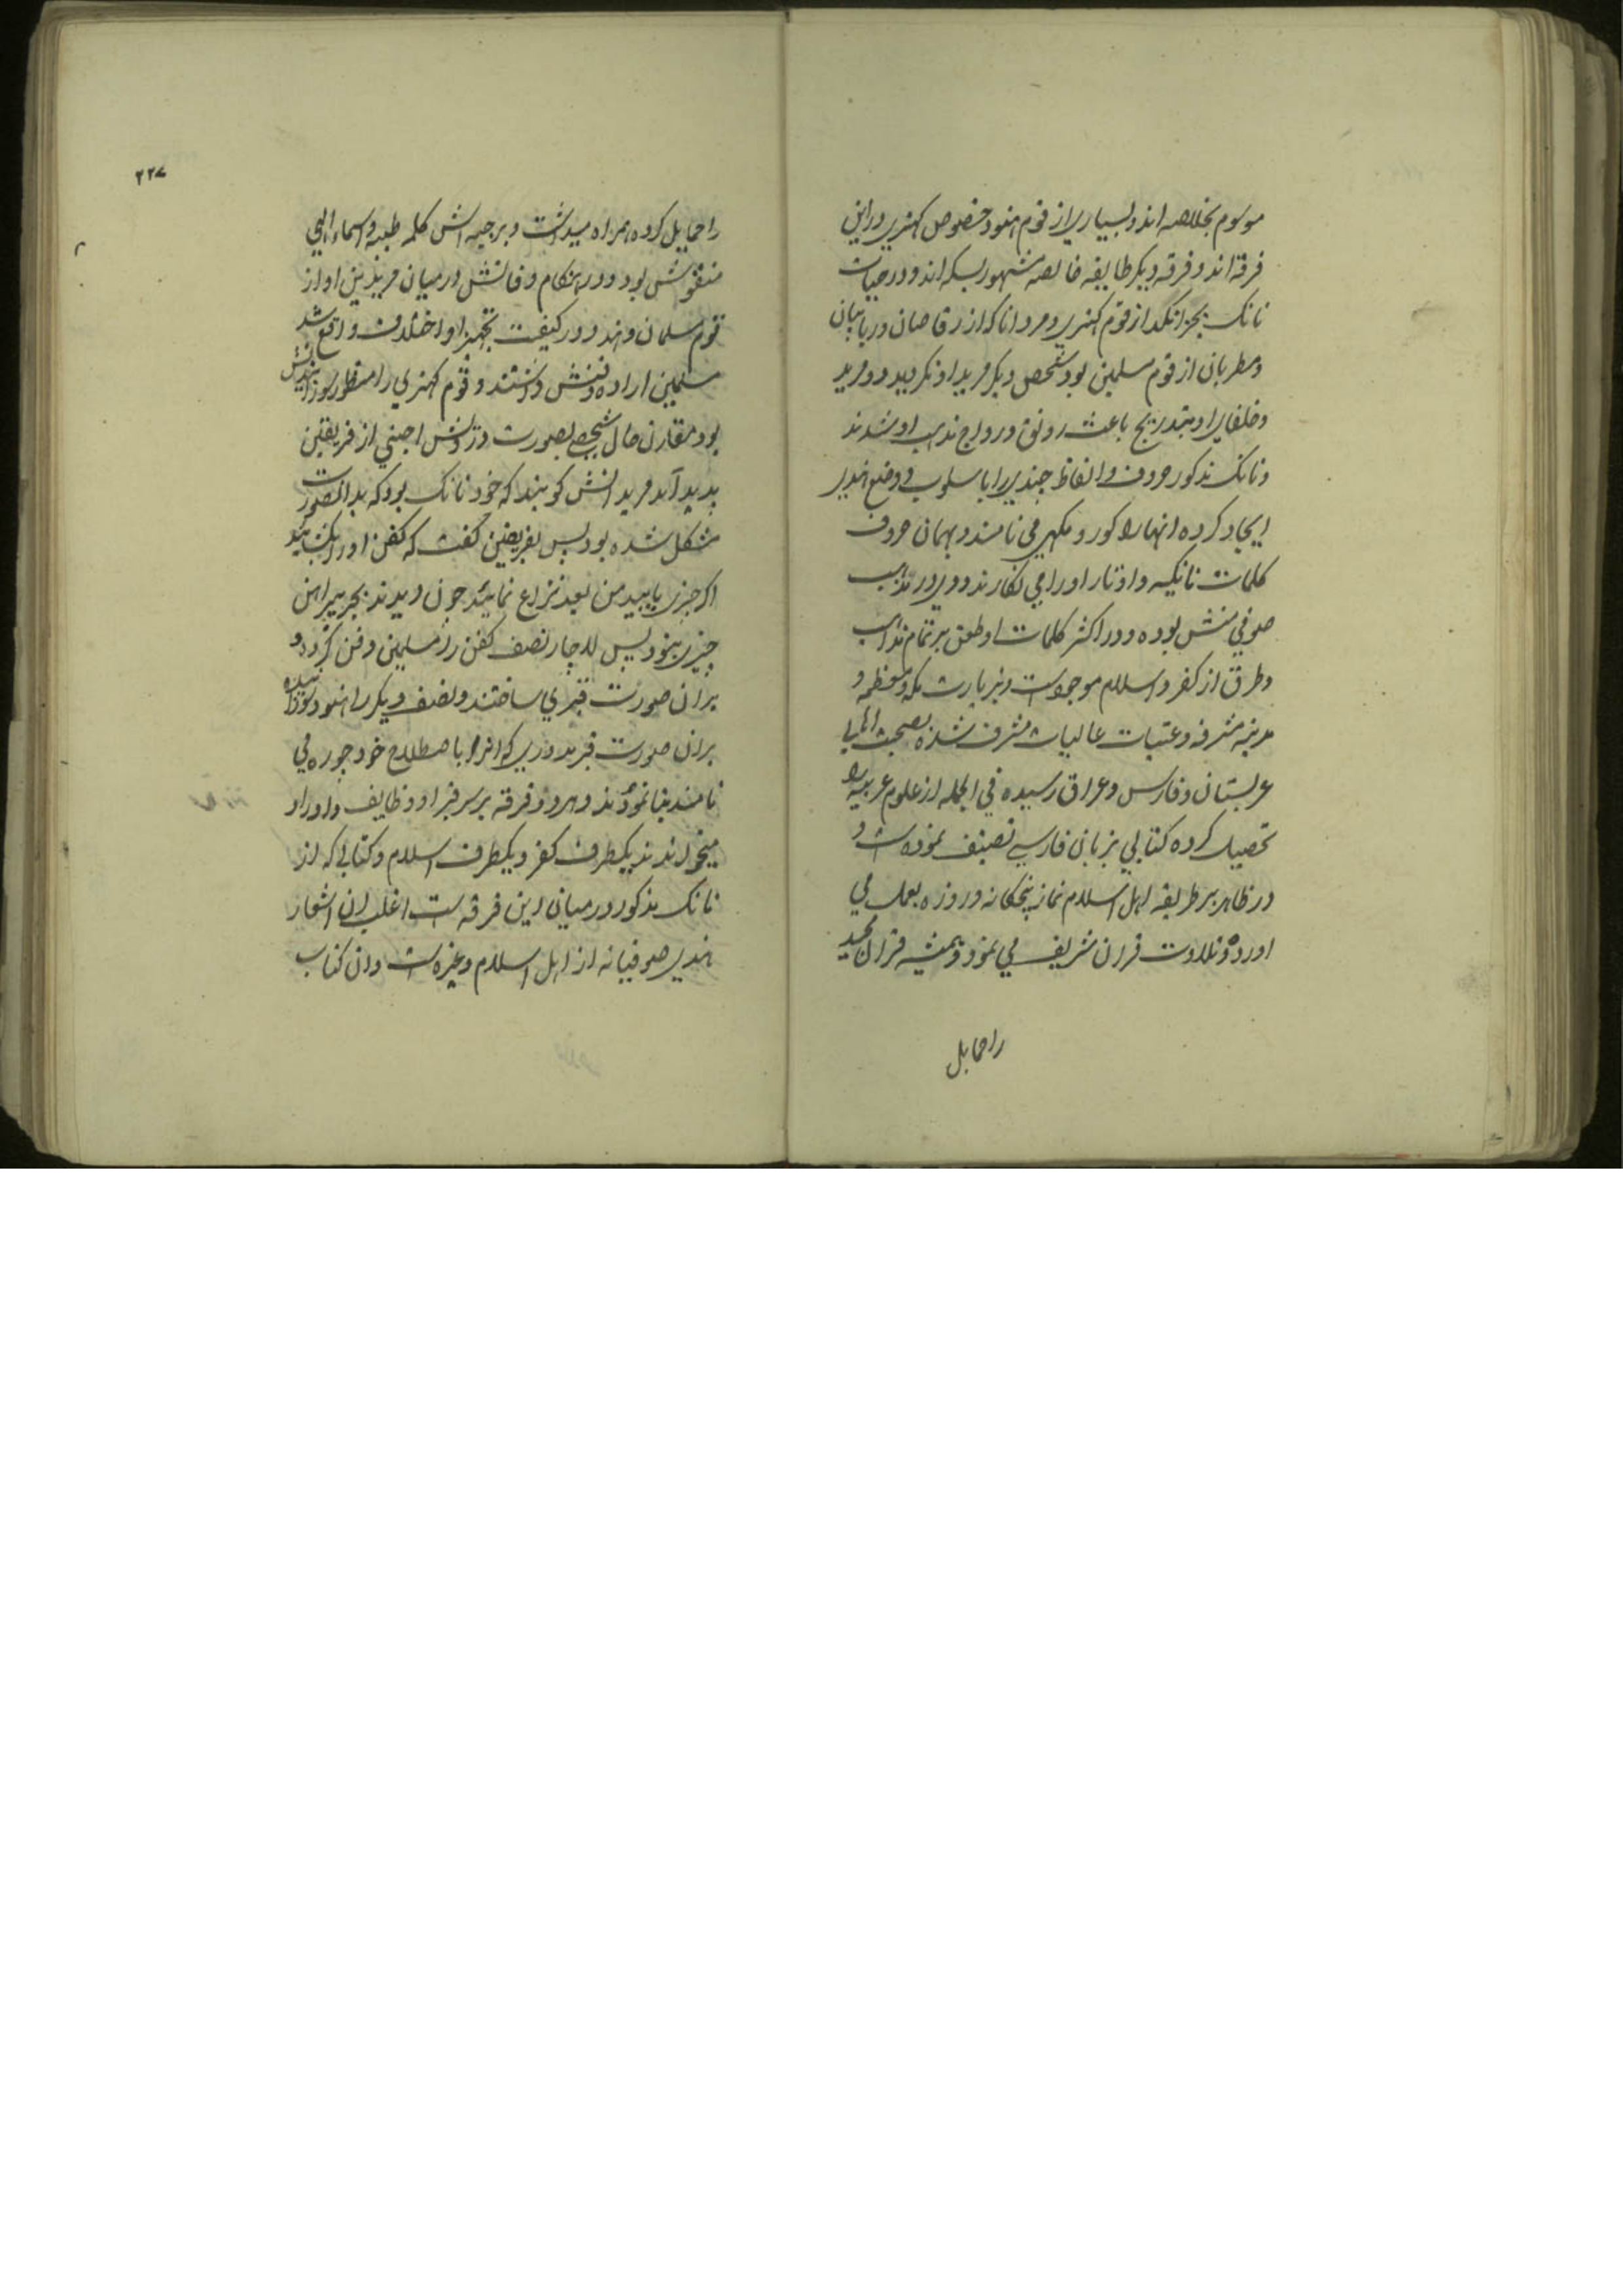 موسوم بخلاصه اند و بسیاری از قوم هنود خصوص کهتری در این
فرقه اند و فرقه دیکر طایفه خالصه مشهور بسکه اند و در حیات
نانک بجز انکد از قوم کهتری و مردانا که از رقاصان و ربابیان
و مطربان از قوم مسلمین بود شخص دیکر مرید او نکردید و مرید
و خلفای او بتدریج باعث رونق و رواج مذهب او شدند
و نانک مذکور حروف و الفاظ چندی را با سلوب و وضع هندی
ایجاد کرده انها را کورومکهی می نامند و بهمان حروف
کلمات نانکیه و اوتار او را می نکارند و وی در مذهب
صوفی منش بوده و در اکثر کلمات او طعن بر تمام مذاهب
و طرق از کفر و اسلام موجود است و بزیارت مکه معظمه و
مدینه مشرفه و عتبات عالیات مشرف شده بصحبت اهالی
عربستان و فارس و عراق رسیده فی الجمله از علوم عربیه را
تحصیل کرده کتابی بزبان فارسی تصنیف نموده است و
در ظاهر بر طریقه اهل اسلام نماز پنجکانه و روزه بعمل می
اورده و تلاوت قران شریف می نمود و همیشه قران مجید
را حمایل
۲۲۷
را حمایل کرده همراه میداشت و بر جبه اش کلمه طیبه و اسماء الهی
منقوش بود و در هنکام وفاتش در میان مریدین او از
قوم مسلمان و هنود در کیفیت تجهیز او اختلاف واقع شد
مسلمین اراده دفنش داشتند و قوم کهتری را منظور سوزانیدنش
بود مقارن حال شخصی بصورت درویش اجنبی از فریقین
پدید آمد مریدانش کویند که خود نانک بود که بدانصورت
متشکل شده بود پس بفریقین کفت که کفن او را بکشایید
اکر چیزی یابید من بعد نزاع نمائید چون دیدند بجز پیراهن
چیزی نبود پس لاچار نصف کفن را مسلمین دفن کردند و
بران صورت قبری ساختند و نصف دیکر را هنود سوزانیده
بران صورت قبر مدوری که انرا باصطلاح خود جوره می
نامند بنا نمودند و هر دو فرقه بر سر قبر او وظایف و اوراد
میخوانند یکطرف کفر و یکطرف اسلام و کتابی که از
نانک مذکور در میان این فرقه است اغلب ان اشعار
هندی صوفیانه از اهل اسلام و غیره است و ان کتاب